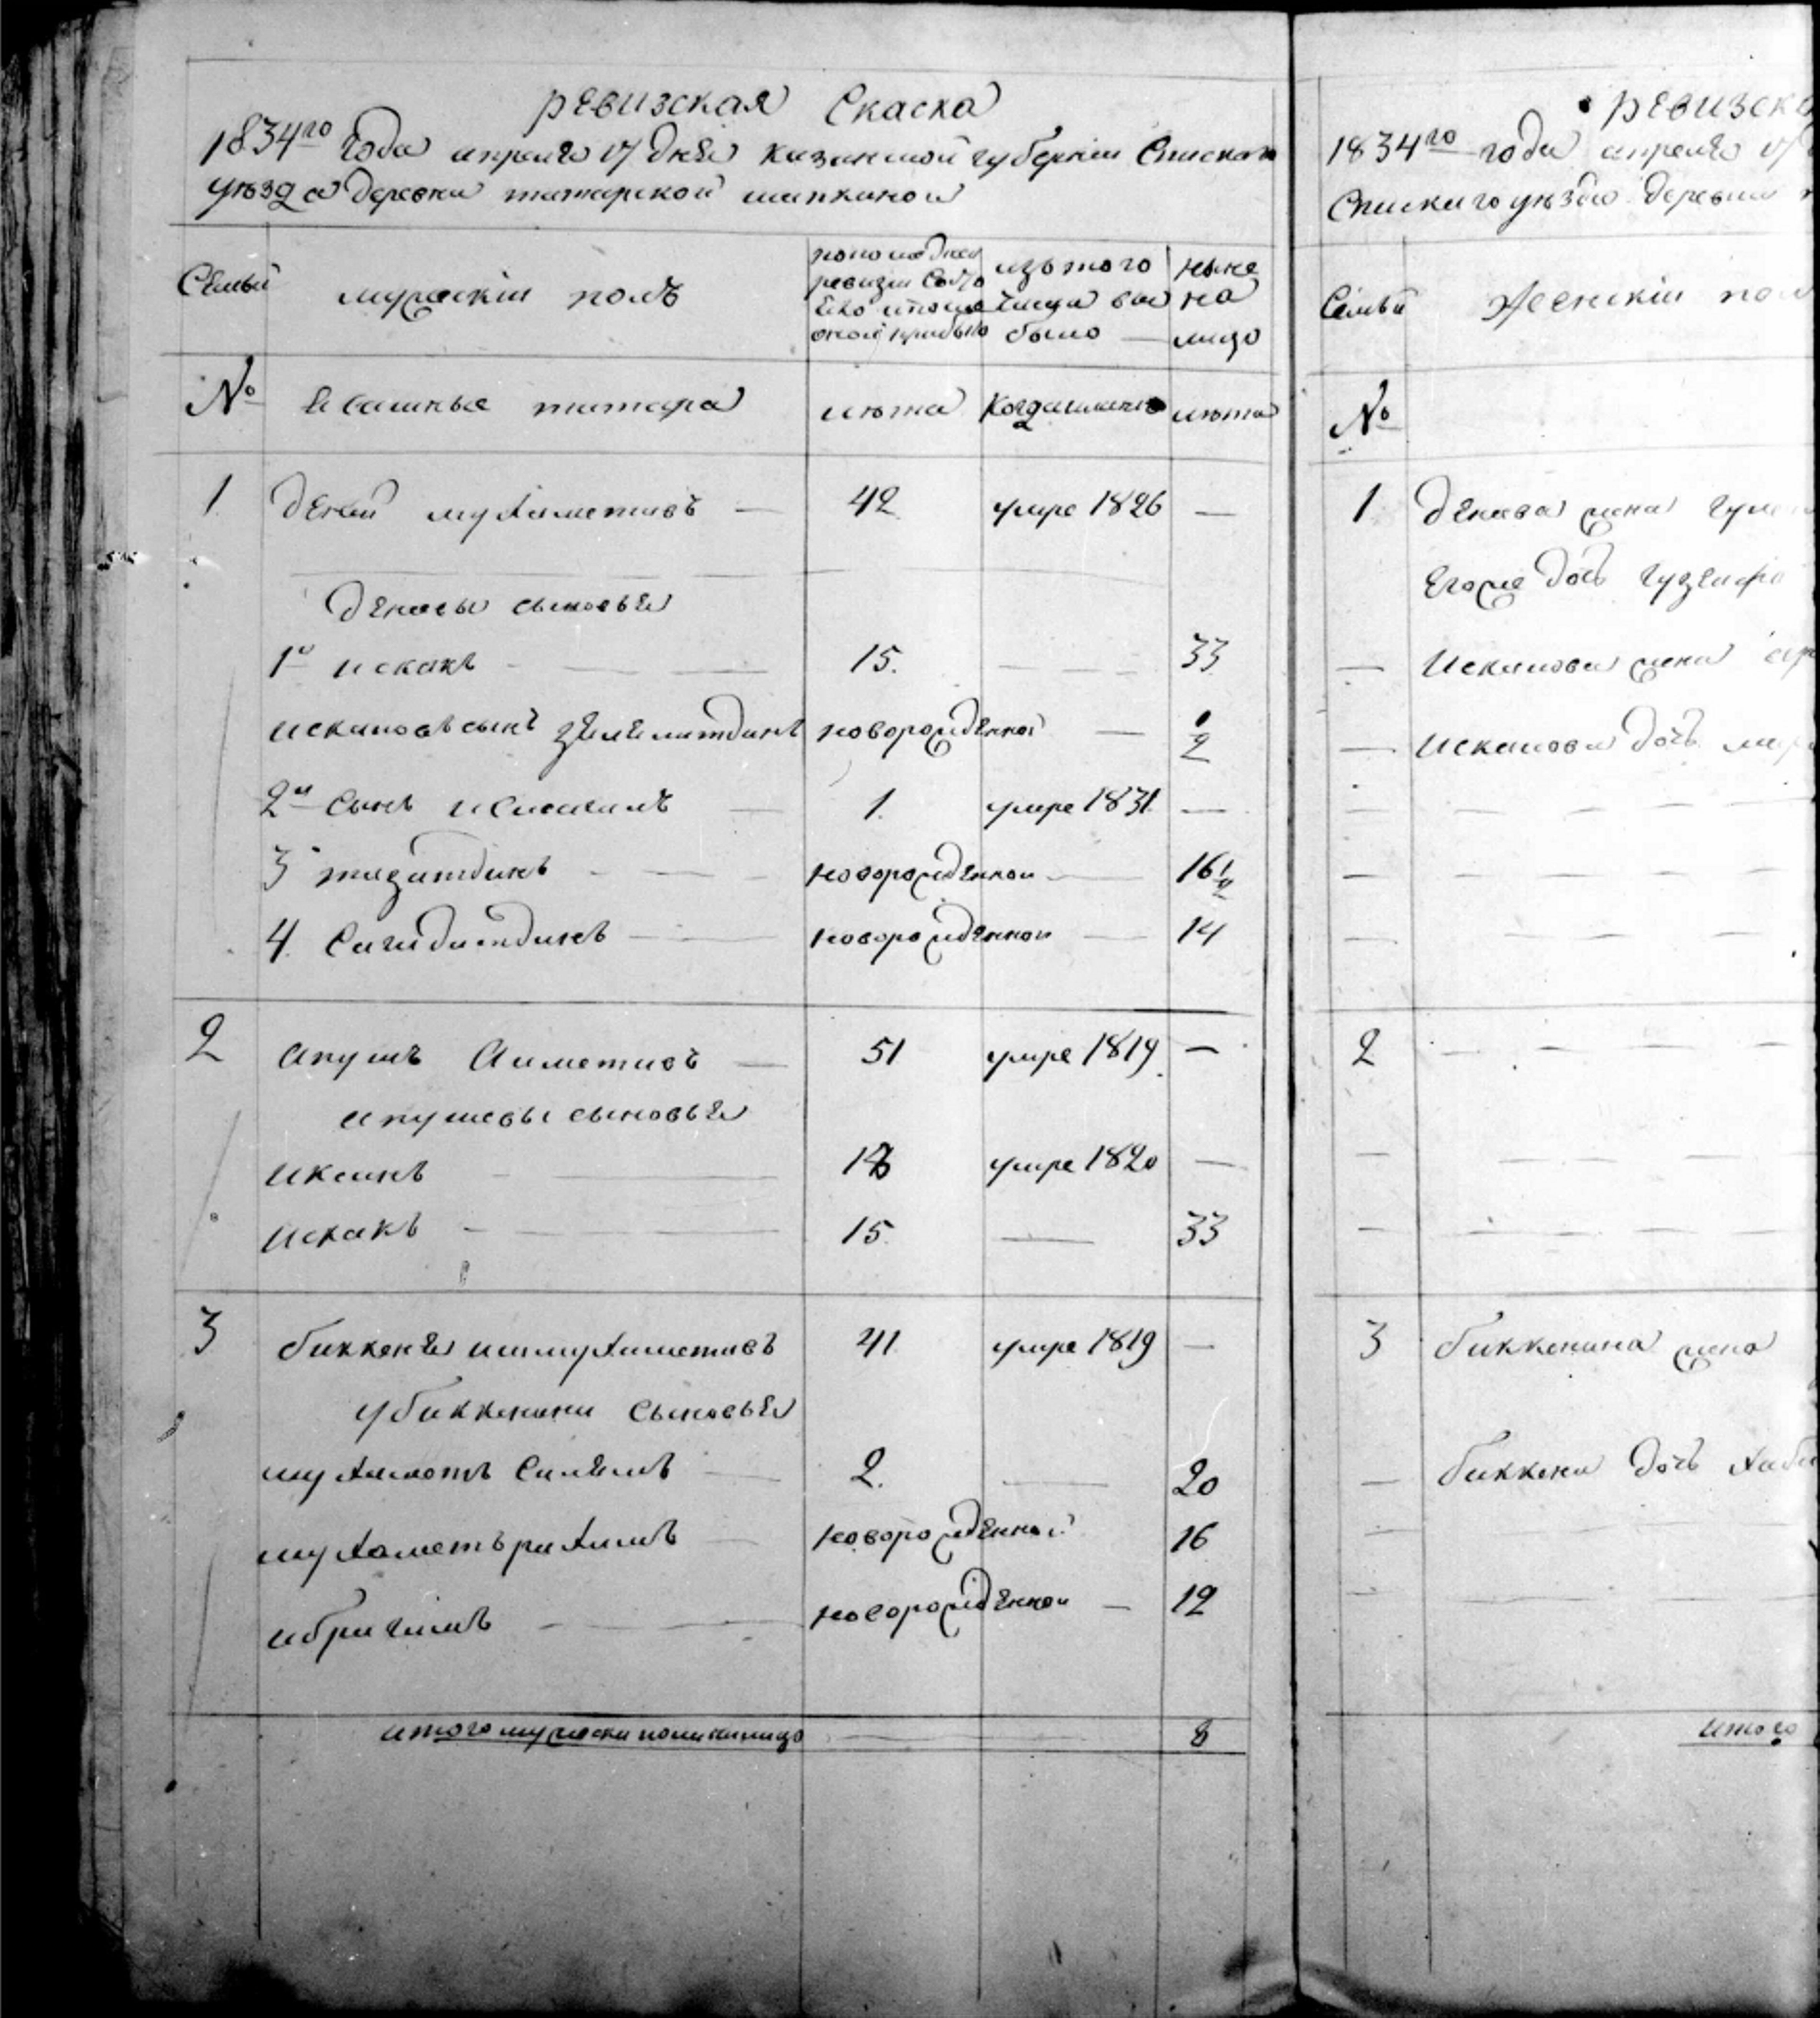 ревизская Скаска
1834го года апреля 17 дня казанской губернии Спаскаго
уезда деревни татарской шапкиной
Семьи
мужескiй полъ
по последней ревизiи Состояло и после оной прибыло
изъ того числа выбыло
ныне на лицо
№
Ясашные татара
лета
Когда именно
лета
1 Денай мухаметовъ — 42 умре 1826 —
Денаевы сыновья
1й искакъ — 15. — 33
искаковъ сынъ новорожденной — 1/2
2й Сынъ исмагилъ — 1. умре 1831. —
3 тазитдинъ — новорожденной — 16 1/2
4. Сагидитдинъ — новорожденной — 14
2 апушъ Ахметовъ — 51 умре 1819. —
апушевы сыновья
иксанъ — умре 1820 —
искакъ — 15. — 33
3 биккеня ишмухаметовъ 41 умре 1819 —
у биккенини сыновья
мухаметъ Салимъ — 2. — 20
мухаметъ рахимъ — новорожденной 16
ибрагимъ — новорожденной — 12
итого мужеска пола налицо — 8
ревизска
1834го года апреля 17
Спаскаго уезда деревни
Семьи
Женскiй пол
№
1 Денаева жена
Егоже дочь
— Искакова жена
— Искакова дочь
2
3 биккенина жена
— биккени дочь
итого